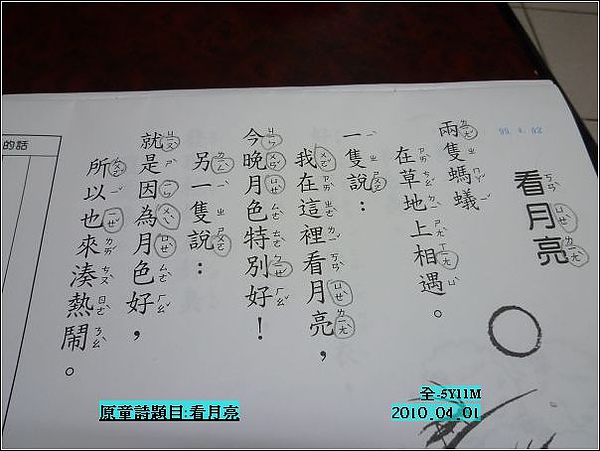 99.4.02
看月亮
兩隻螞蟻
在草地上相遇。
一隻說：
我在這裡看月亮，
今晚月色特別好！
另一隻說：
就是因為月色好，
所以也來湊熱鬧。
的話
全-5Y11M
原童詩題目:看月亮
2010_04_01